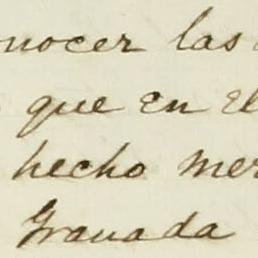 onocer las
que en El
hecho mer
Granada